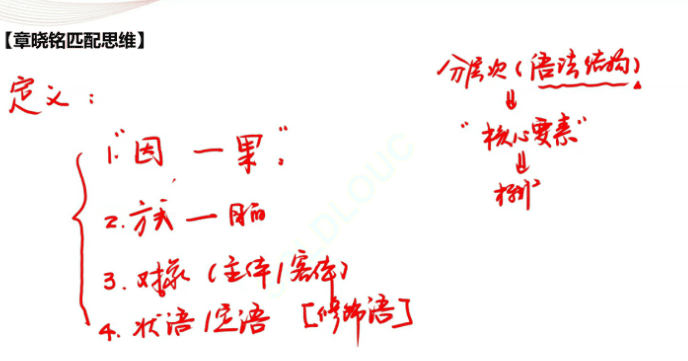 【章晓铭匹配思维】
定义：
1."因 — 果"。
2.方式 — 目的
3.对象（主体/客体）
4.状语/定语 [修饰语]
分层次（语法结构）
"核心要素"